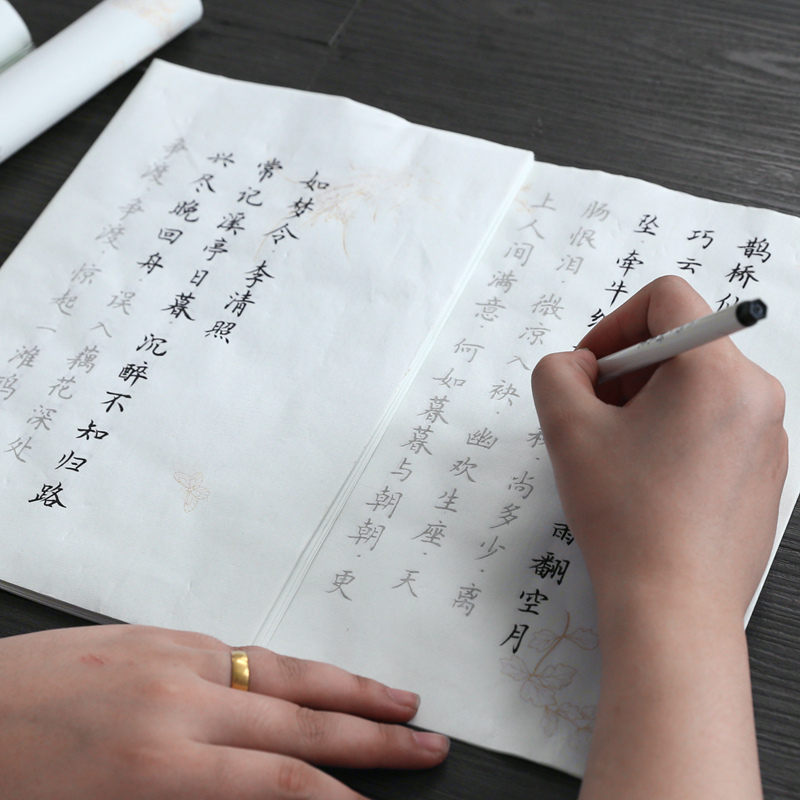 鹊桥仙
巧云
雨翻空月
坠·牵牛
尚多少·离
肠恨泪·微凉入袂·幽欢生座·天
上人间满意·何如暮暮与朝朝·更
如梦令·李清照
常记溪亭日暮·沉醉不知归路
兴尽晚回舟·误入藕花深处
争渡·争渡·惊起一滩鸥